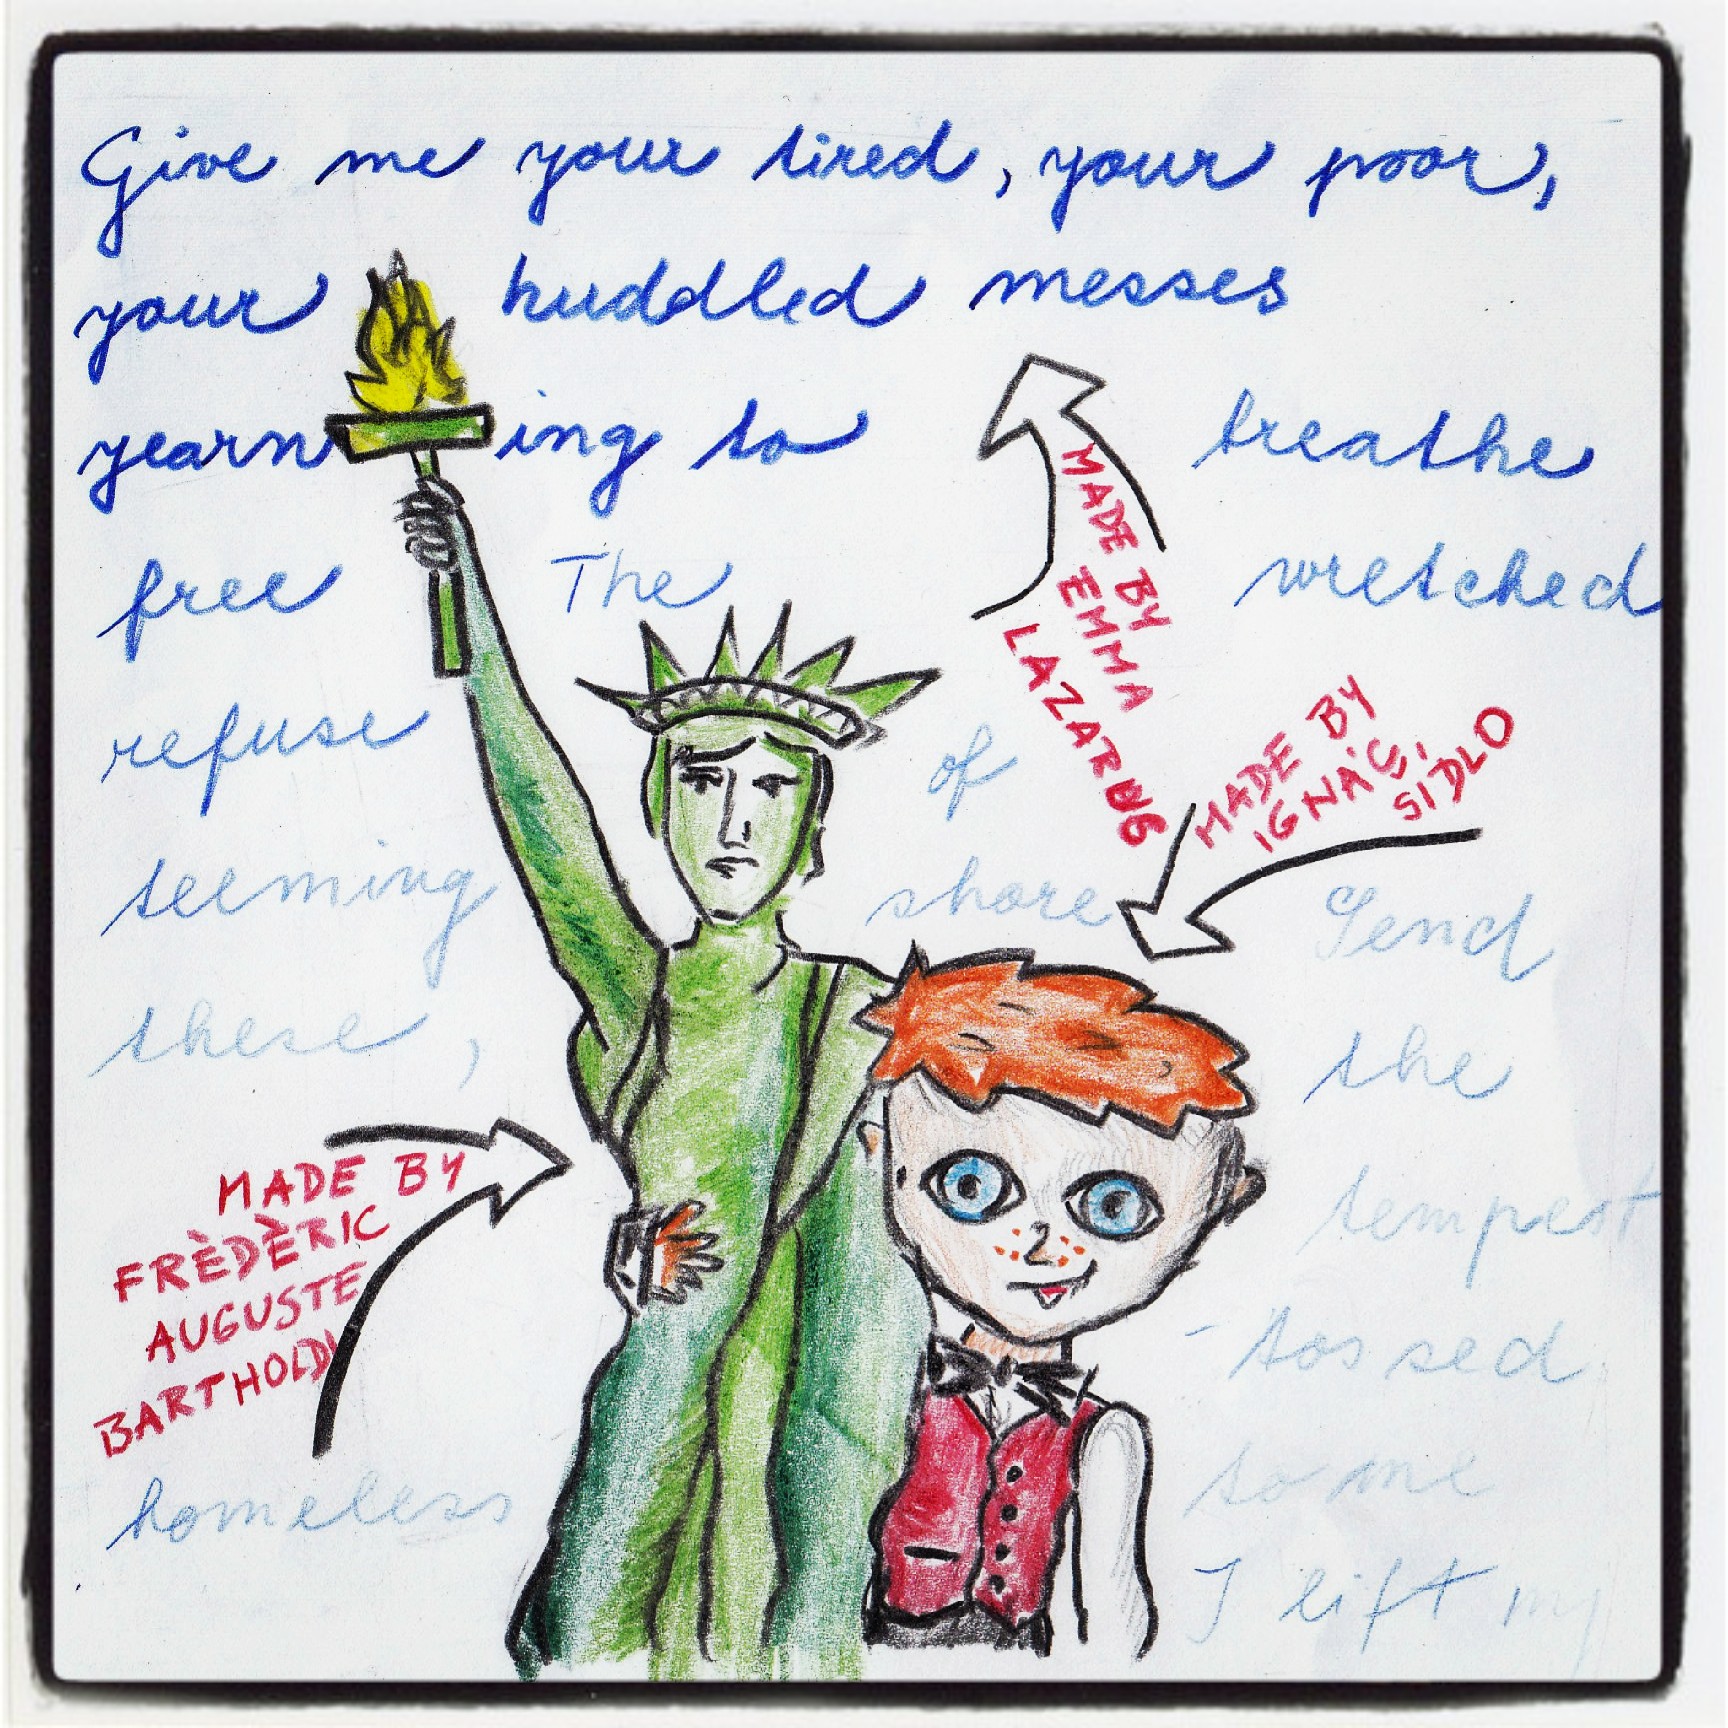 Give me your tired, your poor,
your huddled messes
yearning to breathe
free The wretched
refuse of
teeming shore Send
these, the
tempest
-tossed
homeless to me
I lift my
MADE BY
EMMA
LAZARUS
MADE BY
IGNÁC
SÍDLO
MADE BY
FRÈDÈRIC
AUGUSTE
BARTHOLDI